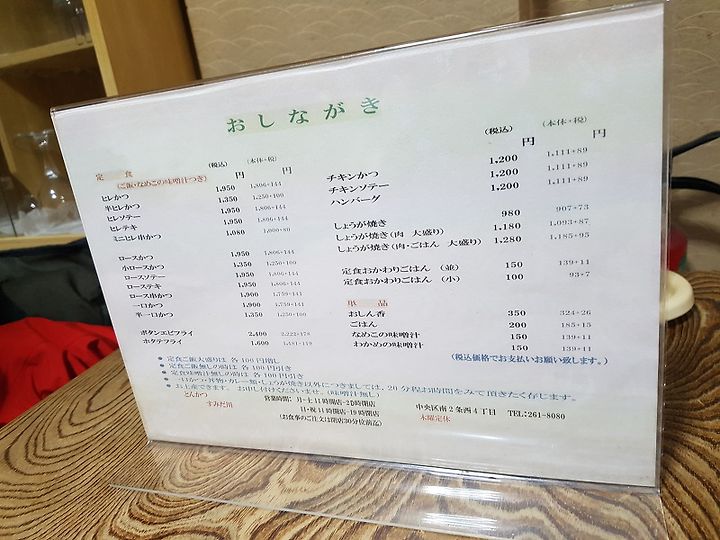 おしながき
定食 (税込) (本体・税)
(ご飯・なめこの味噌汁つき) 円 円
ヒレかつ 1,950 1,806+144
半ヒレかつ 1,350 1,250+100
ヒレソテー 1,950 1,806+144
ヒレテキ 1,950 1,806+144
ミニヒレ串かつ 1,080 1,000+80
ロースかつ 1,950 1,806+144
小ロースかつ 1,350 1,250+100
ロースソテー 1,950 1,806+144
ローステキ 1,950 1,806+144
ロース串かつ 1,900 1,759+141
一口かつ 1,900 1,759+141
半一口かつ 1,350
ボタンエビフライ 2,400 2,222+178
ホタテフライ 1,600 1,481+119
(税込) (本体・税)
円 円
チキンかつ 1,200 1,111+89
チキンソテー 1,200 1,111+89
ハンバーグ 1,200 1,111+89
しょうが焼き 980 907+73
しょうが焼き(肉 大盛り) 1,180 1,093+87
しょうが焼き(肉・ごはん 大盛り) 1,280 1,185+95
定食おかわりごはん (並) 150 139+11
定食おかわりごはん (小) 100 93+7
単品
おしん香 350 324+26
ごはん 200 185+15
なめこの味噌汁 150 139+11
わかめの味噌汁 150 139+11
(税込価格でお支払いお願い致します。)
● 定食ご飯大盛りは 各100円増し
● 定食ご飯無しの時は 各100円引き
● 定食味噌汁無しの時は 各100円引き
● 一口かつ・丼物・カレー類・しょうが焼き以外につきましては、20分程お時間をみて頂きたく存じます。
● お土産できます。 お申し付けくださいませ。(味噌汁無し)
とんかつ
すみだ川
営業時間: 月-土11時開店-21時閉店
日・祝11時開店-19時閉店
(お食事のご注文は閉店30分位前迄)
中央区南2条西4丁目 TEL:261-8080
木曜定休